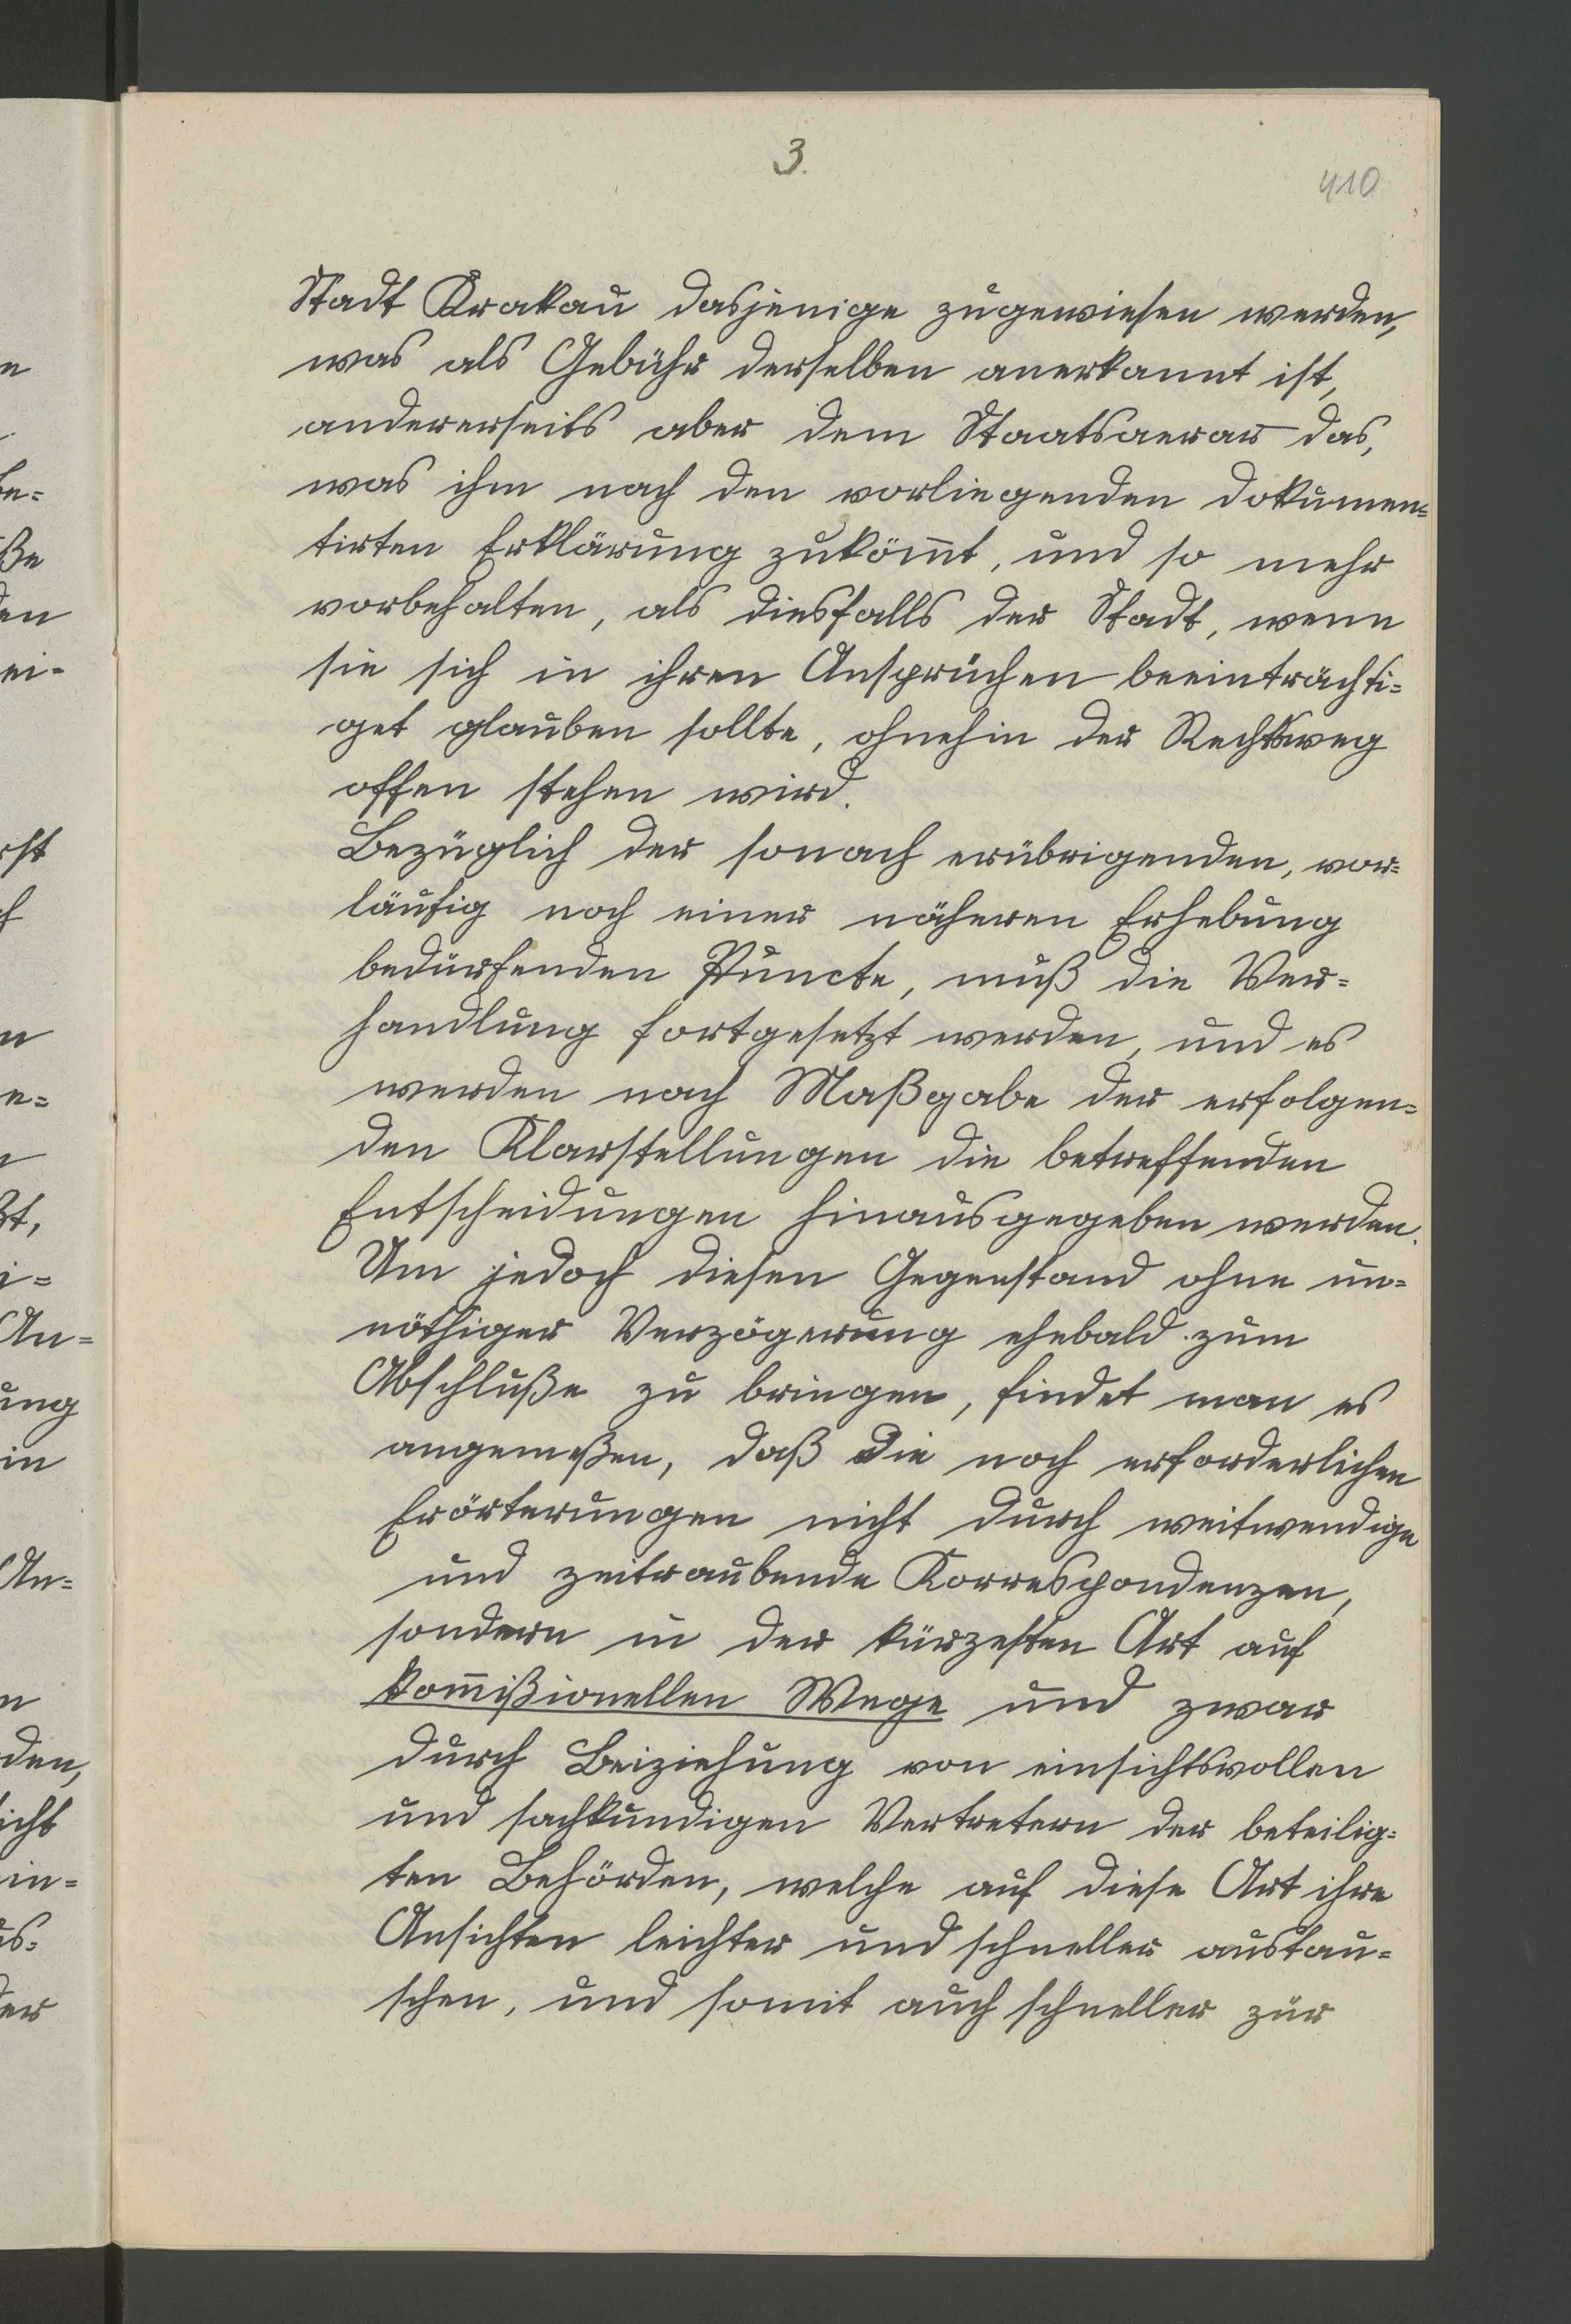 3.
410
Stadt Krakau dasjenige zugewiesen werden,
was als Gebühr derselben anerkannt ist,
andererseits aber dem Staatsaerar das,
was ihm nach den vorliegenden dokumen=
tirten Erklärung zukömt, und so mehr
vorbehalten, als diesfalls der Stadt, wenn
sie sich in ihren Ansprüchen beeinträchti=
get glauben sollte, ohnehin der Rechtsweg
offen stehen wird.
Bezüglich der sonach erübrigenden, vor=
läufig noch einer näheren Erhebung
bedürfenden Puncte, muß die Ver=
handlung fortgesetzt werden, und es
werden nach Maßgabe der erfolgen=
den Klarstellungen die betreffenden
Entscheidungen hinausgegeben werden.
Um jedoch diesen Gegenstand ohne un=
nöthiger Verzögerung ehebald zum
Abschluße zu bringen, findet man es
angemeßen, daß die noch erforderlichen
Erörterungen nicht durch weitwendige
und zeitraubende Korrespondenzen,
sondern in der kürzesten Art auf
kom̄ißionellen Wege und zwar
durch Beiziehung von einsichtsvollen
und sachkundigen Vertretern der beteilig=
ten Behörden, welche auf diese Art ihre
Ansichten leichter und schneller austau=
schen, und somit auch schneller zur